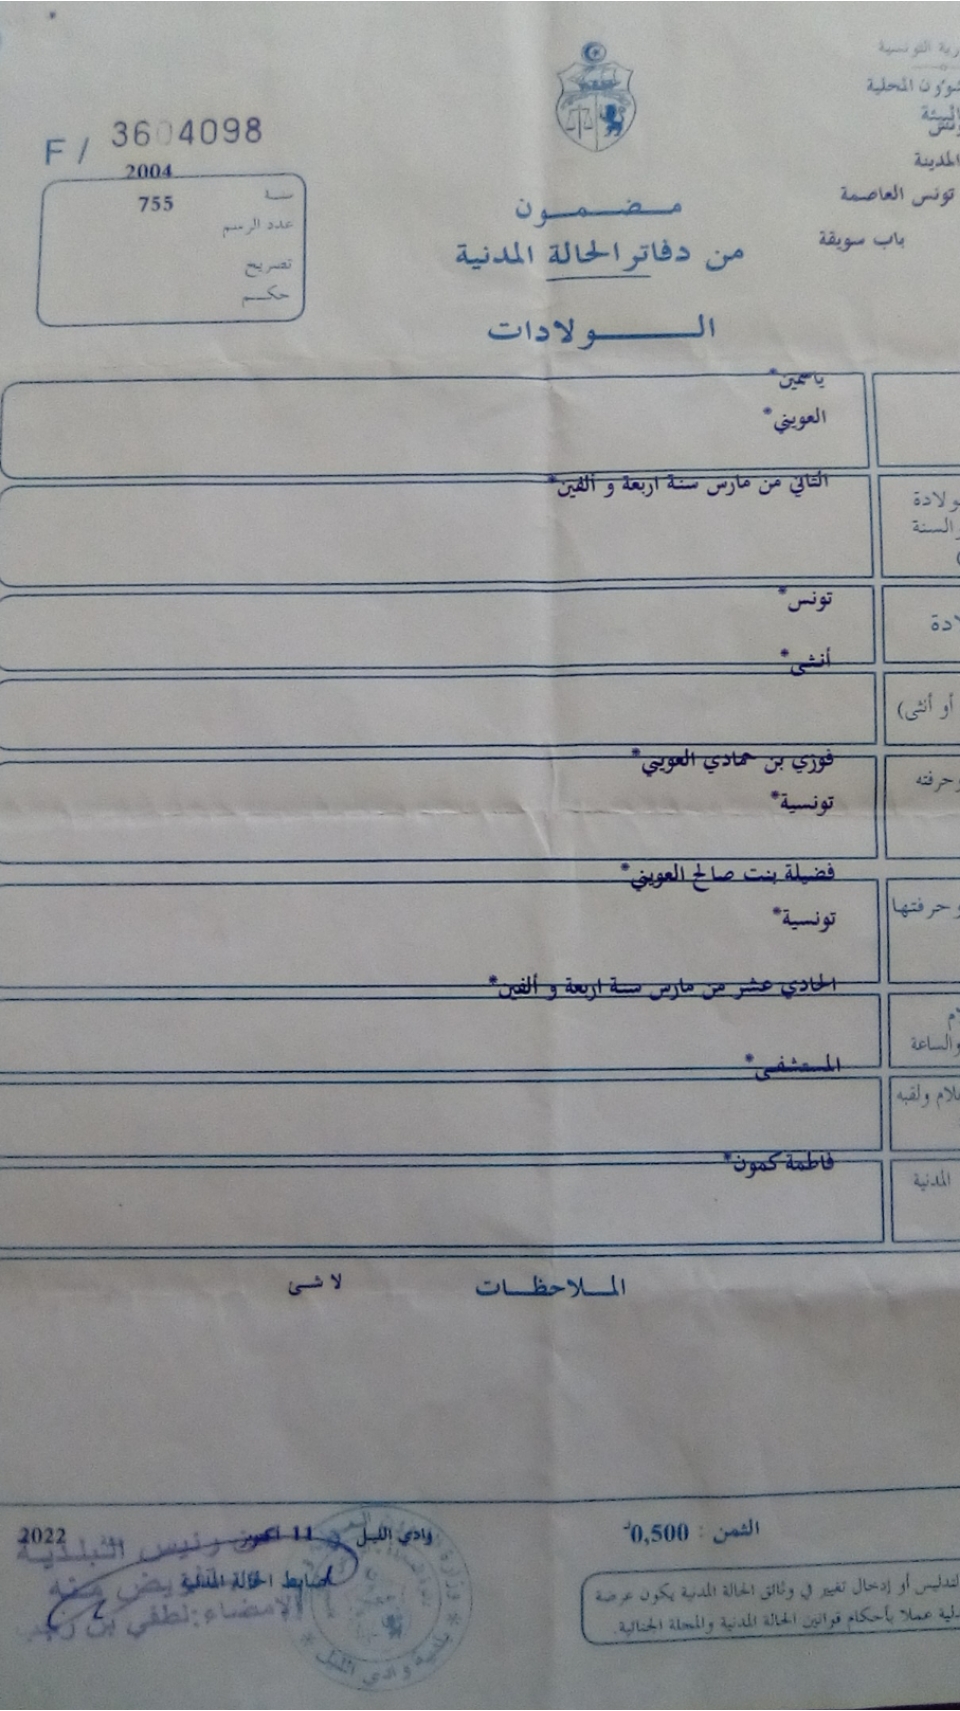 التونسية
المحلية
البيئة
المدينة
تونس العاصمة
باب سويقة
F / 3604098
2004
سنة
755
عدد الرسم
تصريح
حكم
مضمون
من دفاتر الحالة المدنية
الولادات
ياسمين*
العويني*
الثاني من مارس سنة اربعة و ألفين*
والسنة
تونس*
أنثى*
أو أنثى)
فوزي بن حمادي العويني*
وحرفته
تونسية*
فضيلة بنت صالح العويني*
وحرفتها
تونسية*
الحادي عشر من مارس سنة اربعة و ألفين*
والساعة
المستشفى*
ولقبه
فاطمة كمون*
المدنية
الملاحظات
لا شئ
وادي الليل 11 اكتوبر 2022
ضابط الحالة المدنية
عن رئيس البلدية
وبتفويض منه
الإمضاء: لطفي بن رجب
بلدية وادي الليل
الثمن : 0,500د
التدليس أو إدخال تغيير في وثائق الحالة المدنية يكون عرضة
عملا بأحكام قوانين الحالة المدنية والمجلة الجنائية.